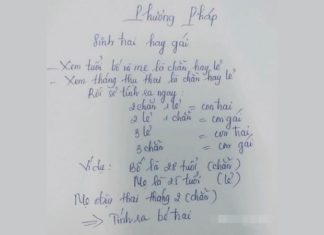 Phương Pháp
Sinh trai hay gái
- Xem tuổi bố và mẹ là chẵn hay lẻ
- Xem tháng thụ thai là chẵn hay lẻ
Rồi sẽ tính ra ngay:
2 chẵn 1 lẻ = con trai
2 lẻ 1 chẵn = con gái
3 lẻ = con trai
3 chẵn = con gái
Ví dụ: Bố là 28 tuổi (chẵn)
Mẹ là 25 tuổi (lẻ)
Mẹ đậu thai tháng 2 (chẵn)
⇒ Tính ra bé trai